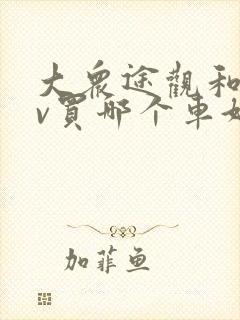 大众途觀和
v買哪个車好
加菲鱼